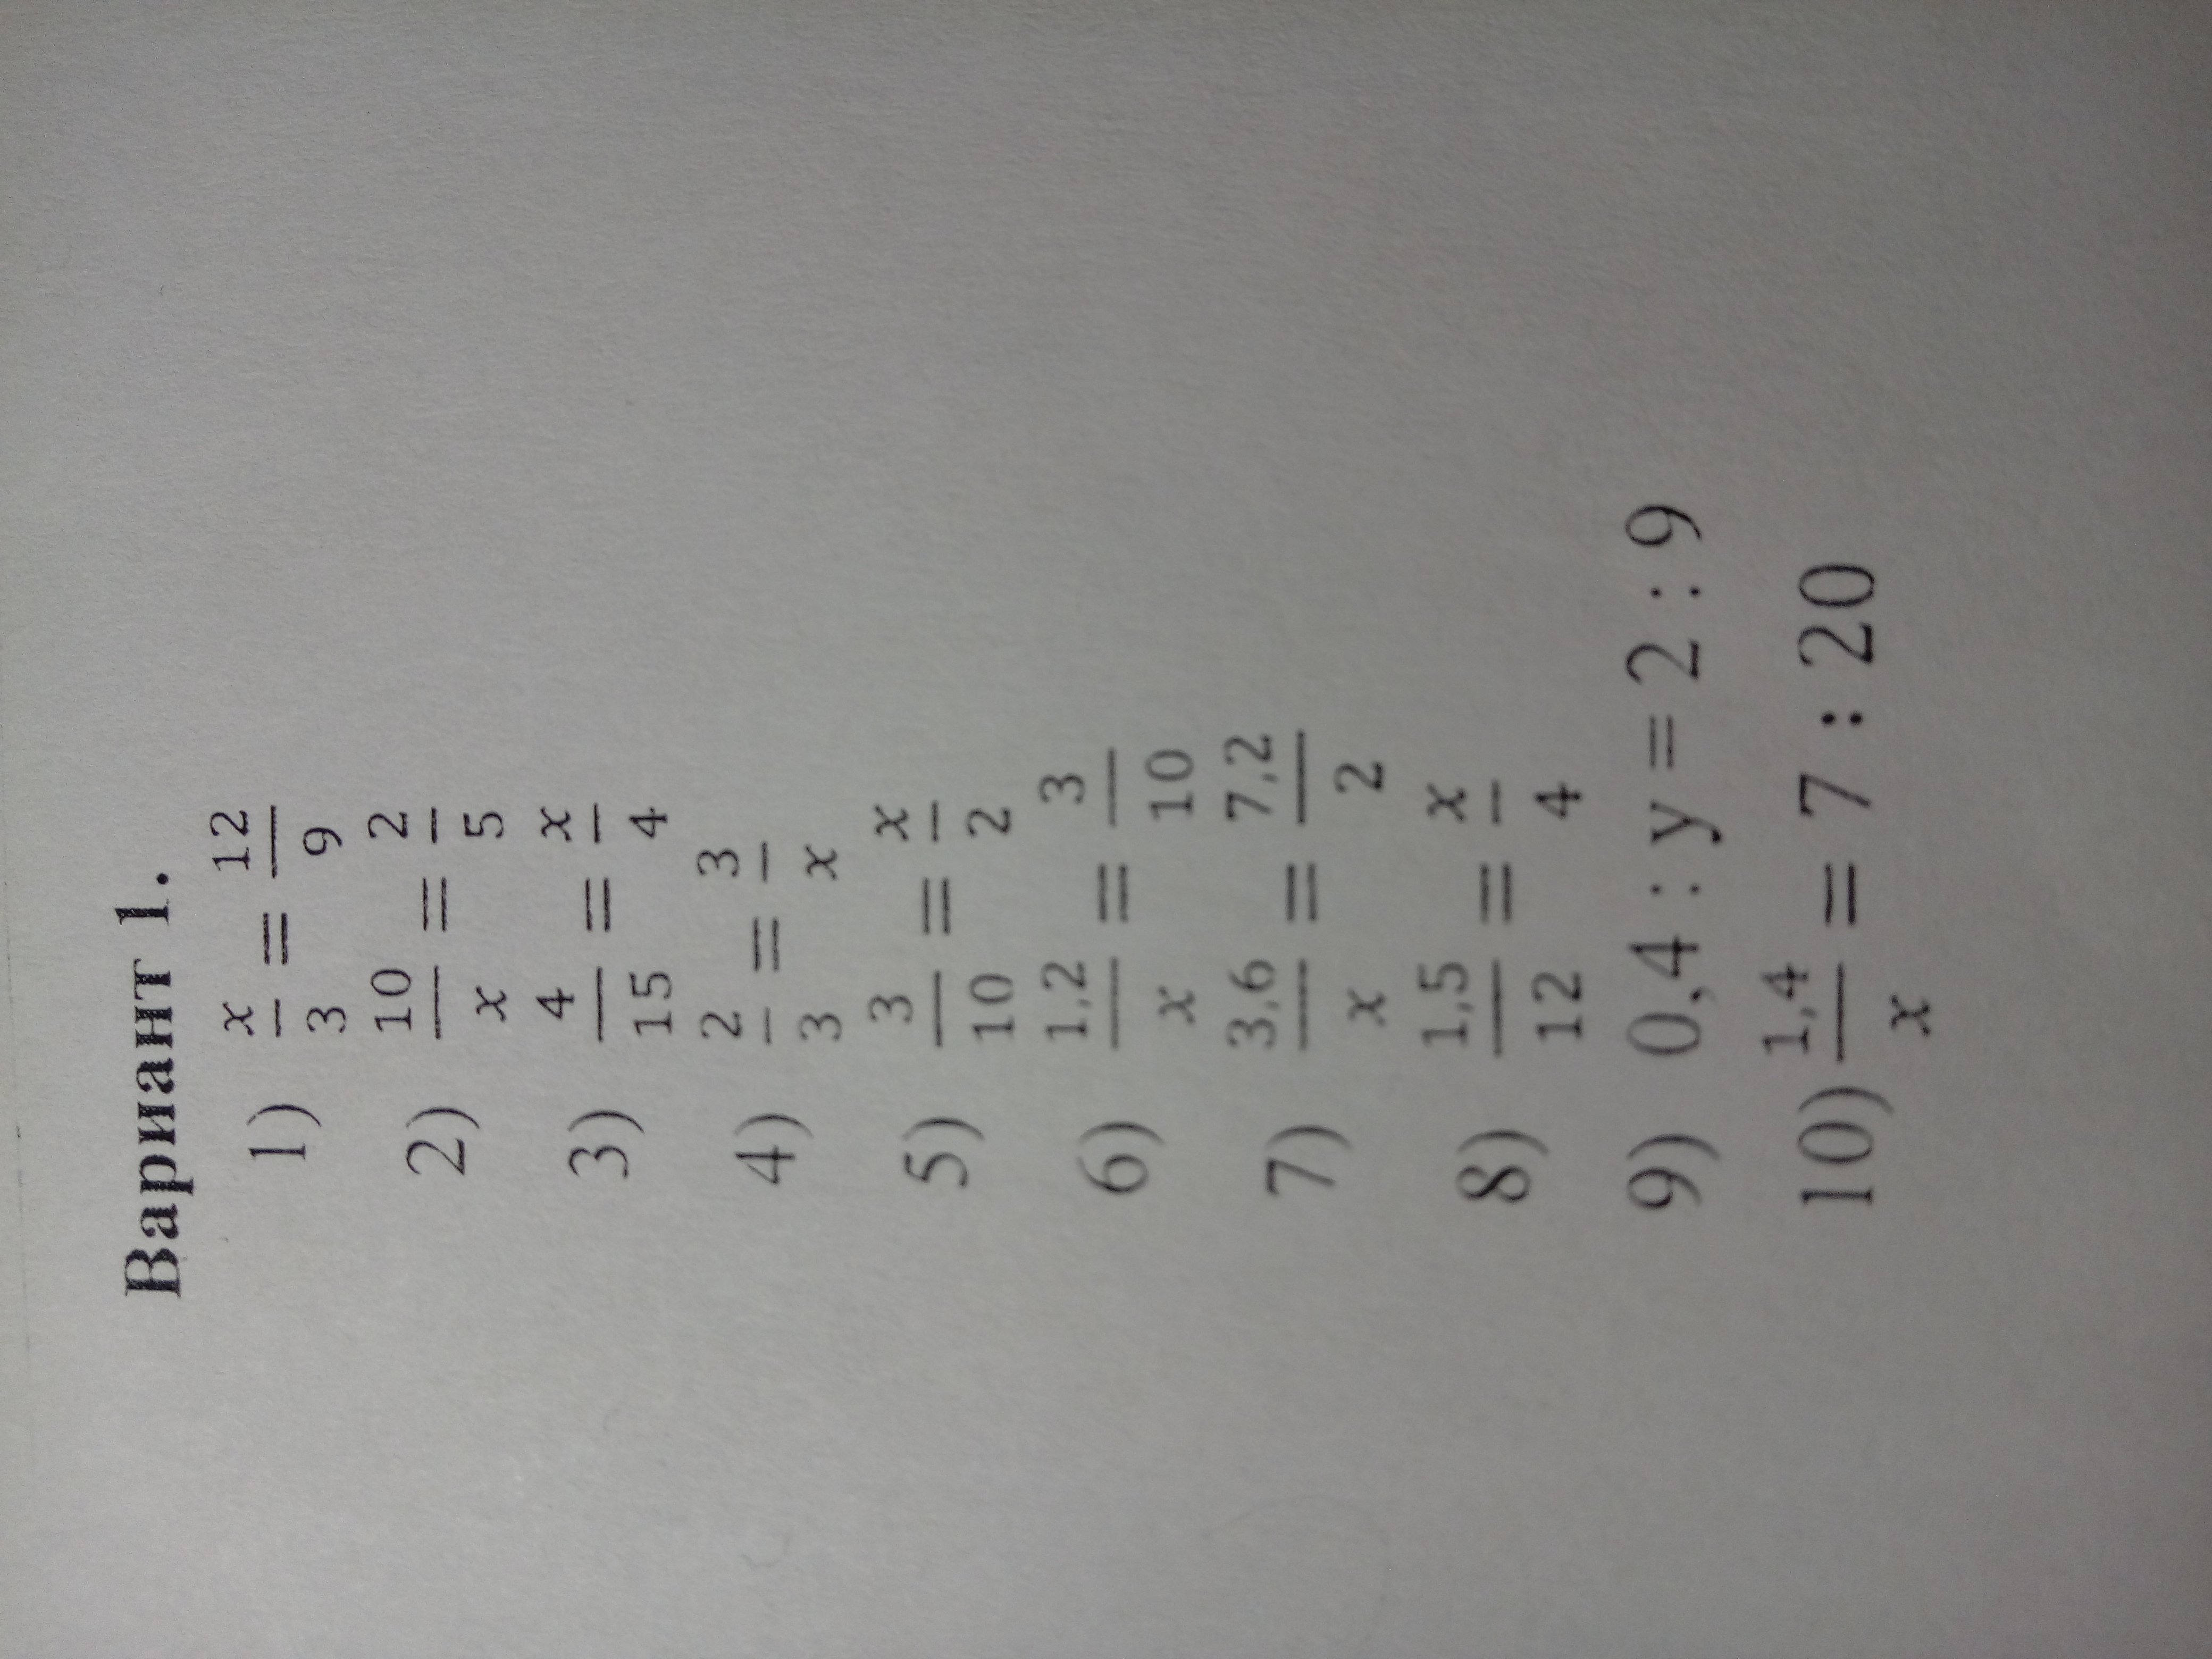 Вариант 1.
1) x/3 = 12/9
2) 10/x = 2/5
3) 4/15 = x/4
4) 2/3 = 3/x
5) 3/10 = x/2
6) 1,2/x = 3/10
7) 3,6/x = 7,2/2
8) 1,5/12 = x/4
9) 0,4 : y = 2 : 9
10) 1,4/x = 7 : 20